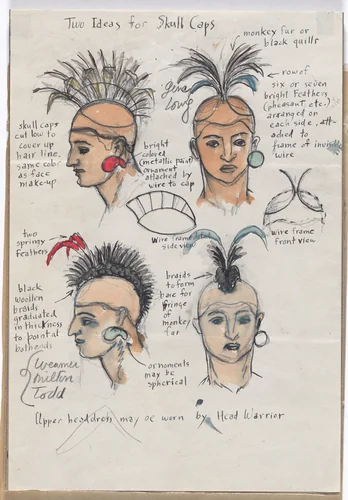 Two Ideas for Skull Caps
monkey fur or
black quills
Gina
Long
row of
six or seven
bright feathers
(pheasant etc.)
arranged on
each side, att-
ached to
frame of invisible
wire
skull caps
cut low to
cover up
hair line,
same color
as face
make-up
bright
colored
(metallic paint)
ornament
attached by
wire to cap
wire frame
side view
wire frame
front view
two
springy
feathers
braids
to form
base for
fringe
of
monkey
fur
black
woollen
braids
graduated
in thickness
to point at
both ends
Weamer
Milton
Todd
ornaments
may be
spherical
Upper headdress may be worn by Head Warrior